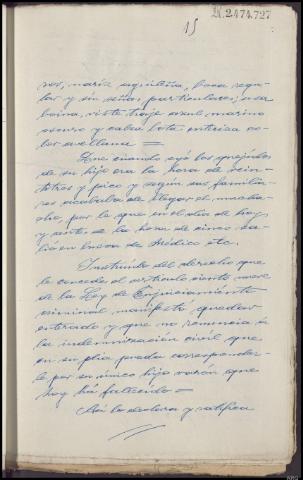 N.2.474.727
15
ros, nariz aguileña, boca regu-
lar y sin señas particulares; usa
boina, viste traje azul marino
oscuro y calza bota enteriza co-
lor avellana =
Que cuando oyó los quejidos
de su hijo era la hora de vein-
titres y pico y según sus familia-
res acababa de llegar el mucha-
cho, por lo que en el día de hoy
y antes de la hora de cinco sa-
lió en busca de Médico etc.
Instruido del derecho que
le concede el artículo ciento nueve
de la Ley de Enjuiciamiento
criminal manifestó quedar
enterado y que no renuncia á
la indemnización civil que
en su día pueda corresponder-
le por su único hijo varón que
hoy há fallecido =
Así lo declara y ratifica